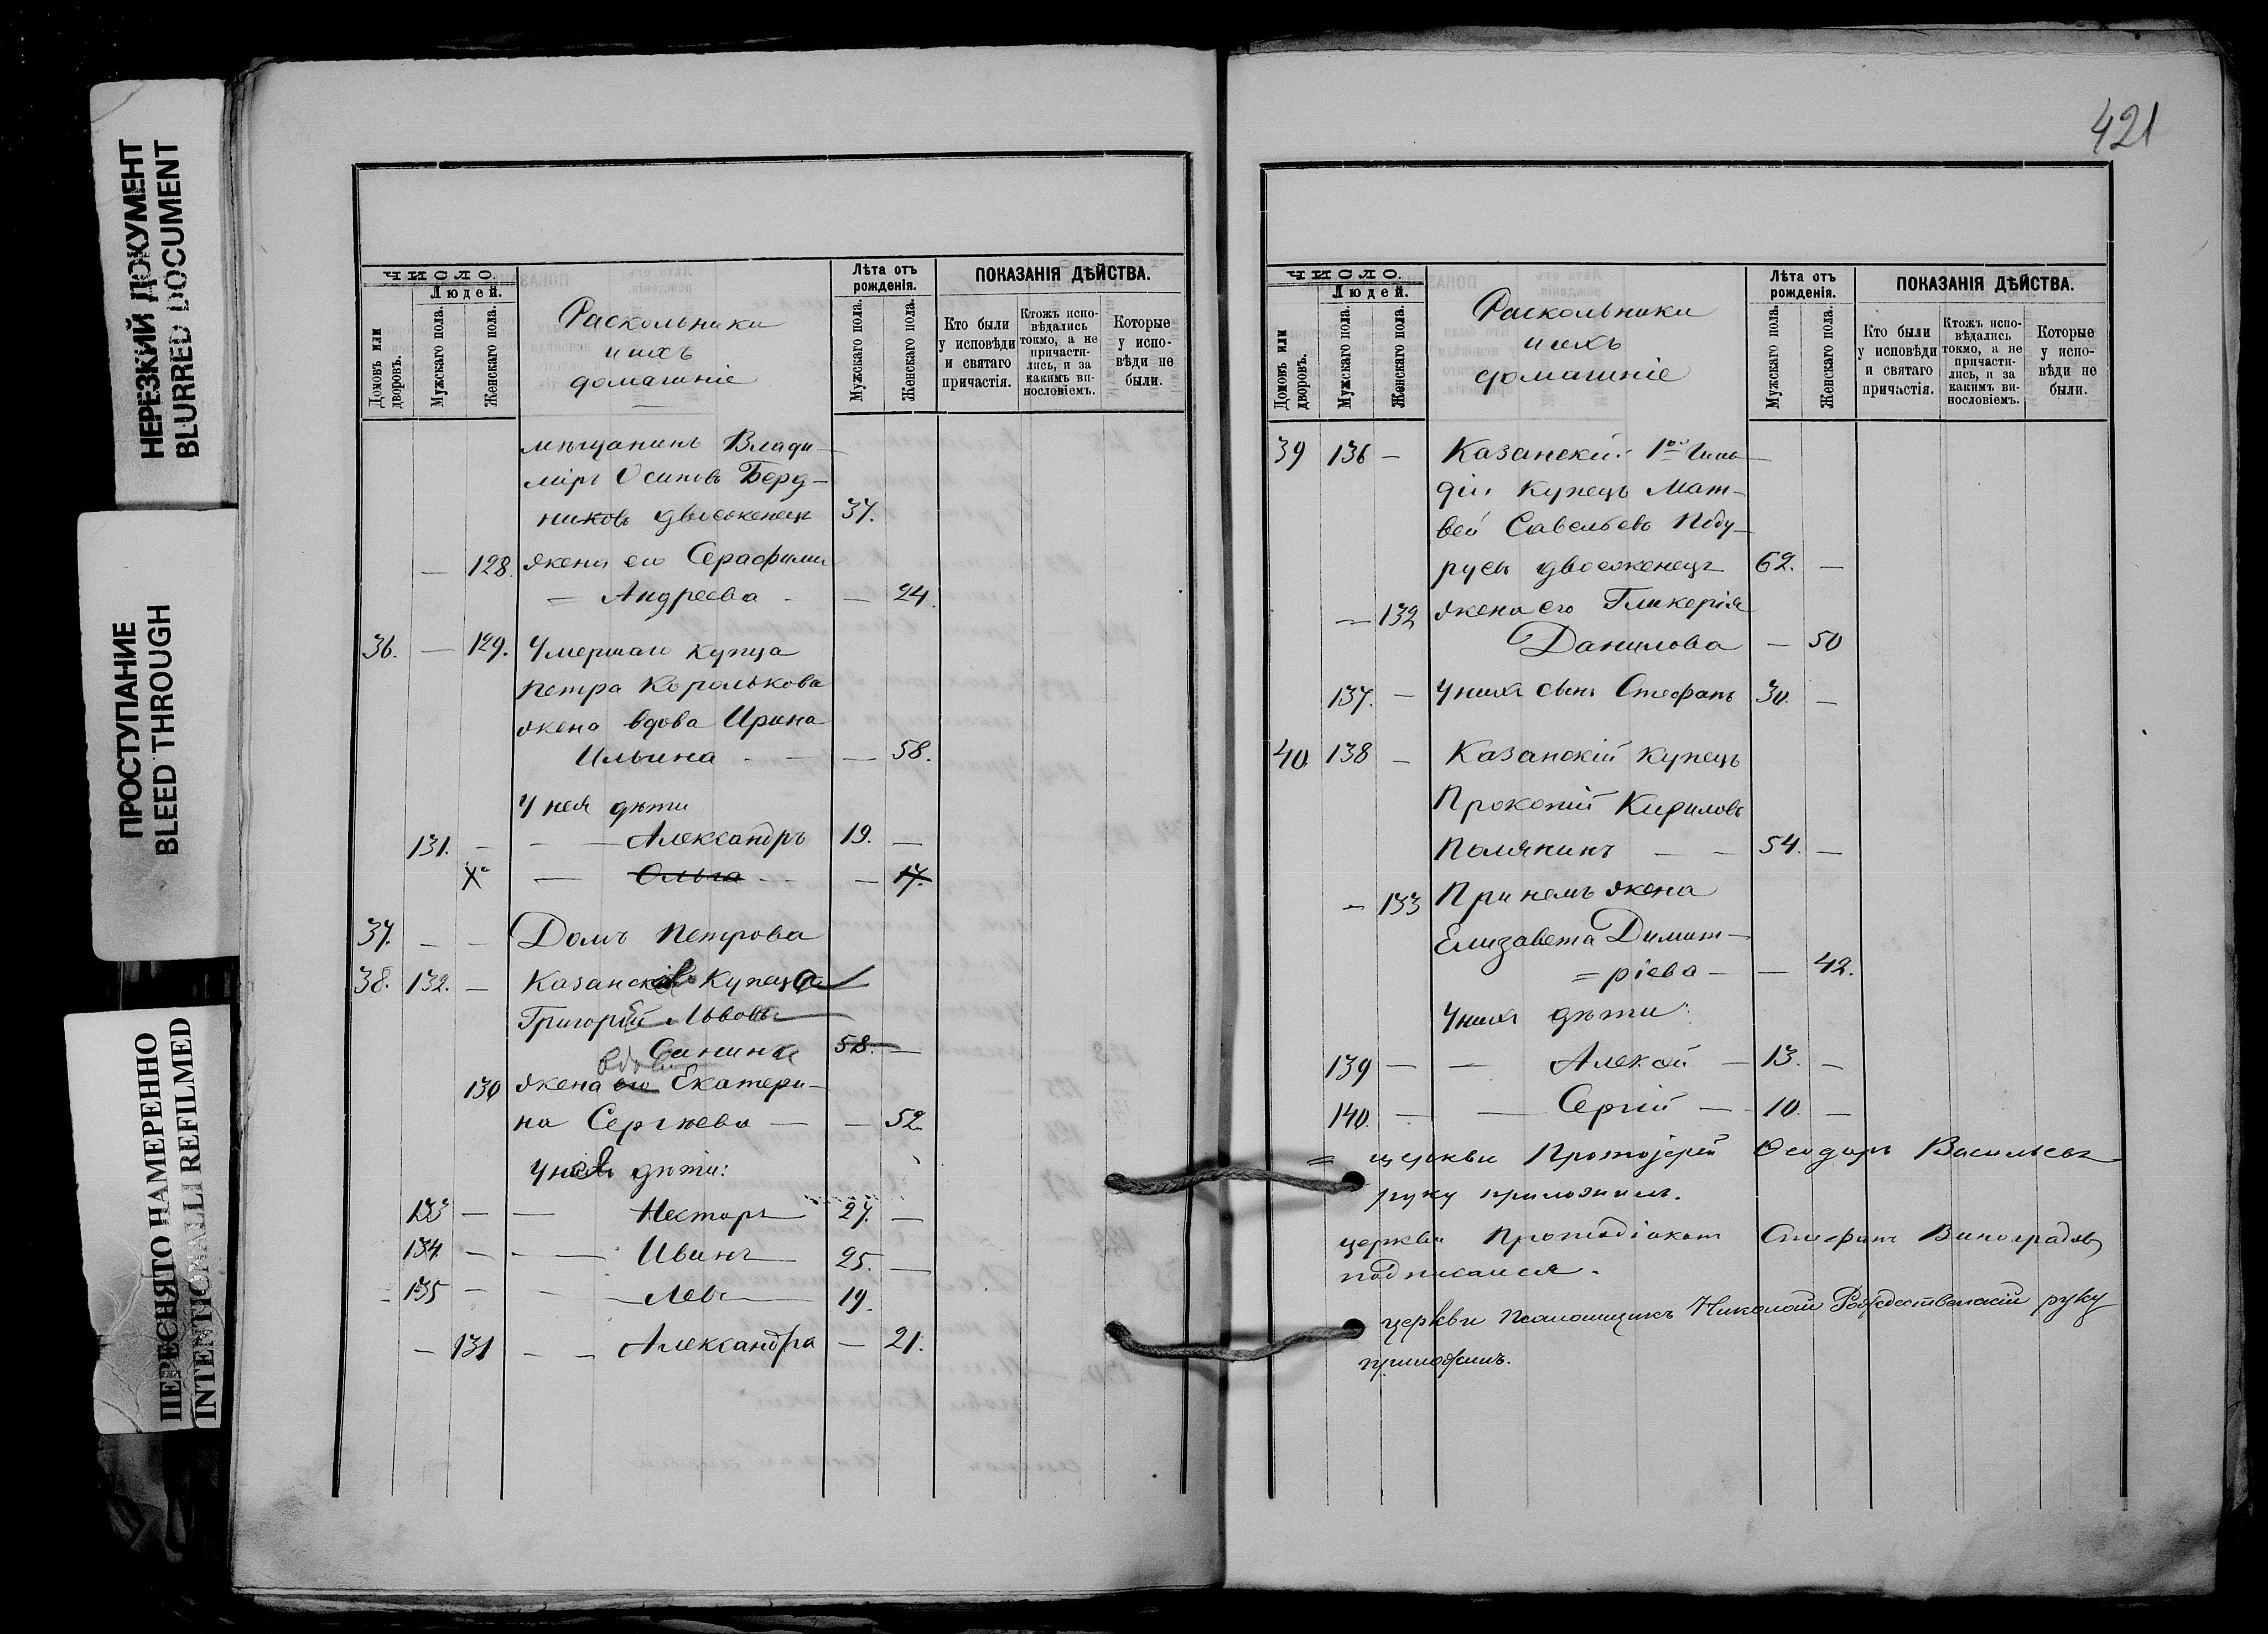 НЕРЕЗКИЙ ДОКУМЕНТ
BLURRED DOCUMENT
ПРОСТУПАНИЕ
BLEED THROUGH
ПЕРЕСНЯТО НАМЕРЕННО
INTENTIONALLI REFILMED
ЧИСЛО.
Людей.
Домовъ или дворовъ.
Мужскаго пола.
Женскаго пола.
Раскольники
и ихъ
домашніе
Лѣта отъ
рожденія.
Мужскаго пола.
Женскаго пола.
ПОКАЗАНІЯ ДѢЙСТВА.
Кто были
у исповѣди
и святаго
причастія.
Ктожъ испо-
вѣдались
токмо, а не
причасти-
лись, и за
какимъ ви-
нословіемъ.
Которые
у испо-
вѣди не
были.
мѣщанинъ Влади-
міръ Осиповъ Берд-
никовъ двоеженецъ 37.
— 128. жена его Серафима
= Андреева - — 24.
36. — 129. Умершаго купца
Петра Королькова
жена вдова Ирина
Ильина - — — 58.
У нея дѣти
131. - - — Александръ 19. —
X — Ольга - — 17.
37. — - Домъ Петрова
38. 132. — Казанск Купеца
Григорій Львовъ
Санинъ 58. —
вдова
130 жена его Екатери-
на Сергѣева — — 52
У нея дѣти:
133 — — Несторъ 27. —
134 — - — Иванъ 25. —
135 — - — Левъ 19.
— 131 - — Александра — 21.
421
ЧИСЛО.
Людей.
Домовъ или дворовъ.
Мужскаго пола.
Женскаго пола.
Раскольники
и ихъ
домашніе
Лѣта отъ
рожденія.
Мужскаго пола.
Женскаго пола.
ПОКАЗАНІЯ ДѢЙСТВА.
Кто были
у исповѣди
и святаго
причастія.
Ктожъ испо-
вѣдались
токмо, а не
причасти-
лись, и за
какимъ ви-
нословіемъ.
Которые
у испо-
вѣди не
были.
39 136 — Казанскій 1ой Гиль-
діи Купецъ Мат-
вей Савельевъ Поду-
русы двоеженецъ 62. —
— 132 жена его Гликерія
Данилова — 50
137. — У нихъ сынъ Стефанъ 30. —
40 138 — Казанскій Купецъ
Прокопій Кириловъ
Полякинъ — — 54. —
— 133 При немъ жена
Елизавета Димит-
=ріева — — 42.
У нихъ дѣти:
139 — — Алексѣй — 13. —
140. — — Сергій — 10. —
= церкви Протоіерей Ѳеодоръ Васильевъ
руку приложилъ.
церкви Протодіаконъ Стефанъ Виноградовъ
подписался.
церкви Псаломщикъ Николай Рождественскій руку
приложилъ.